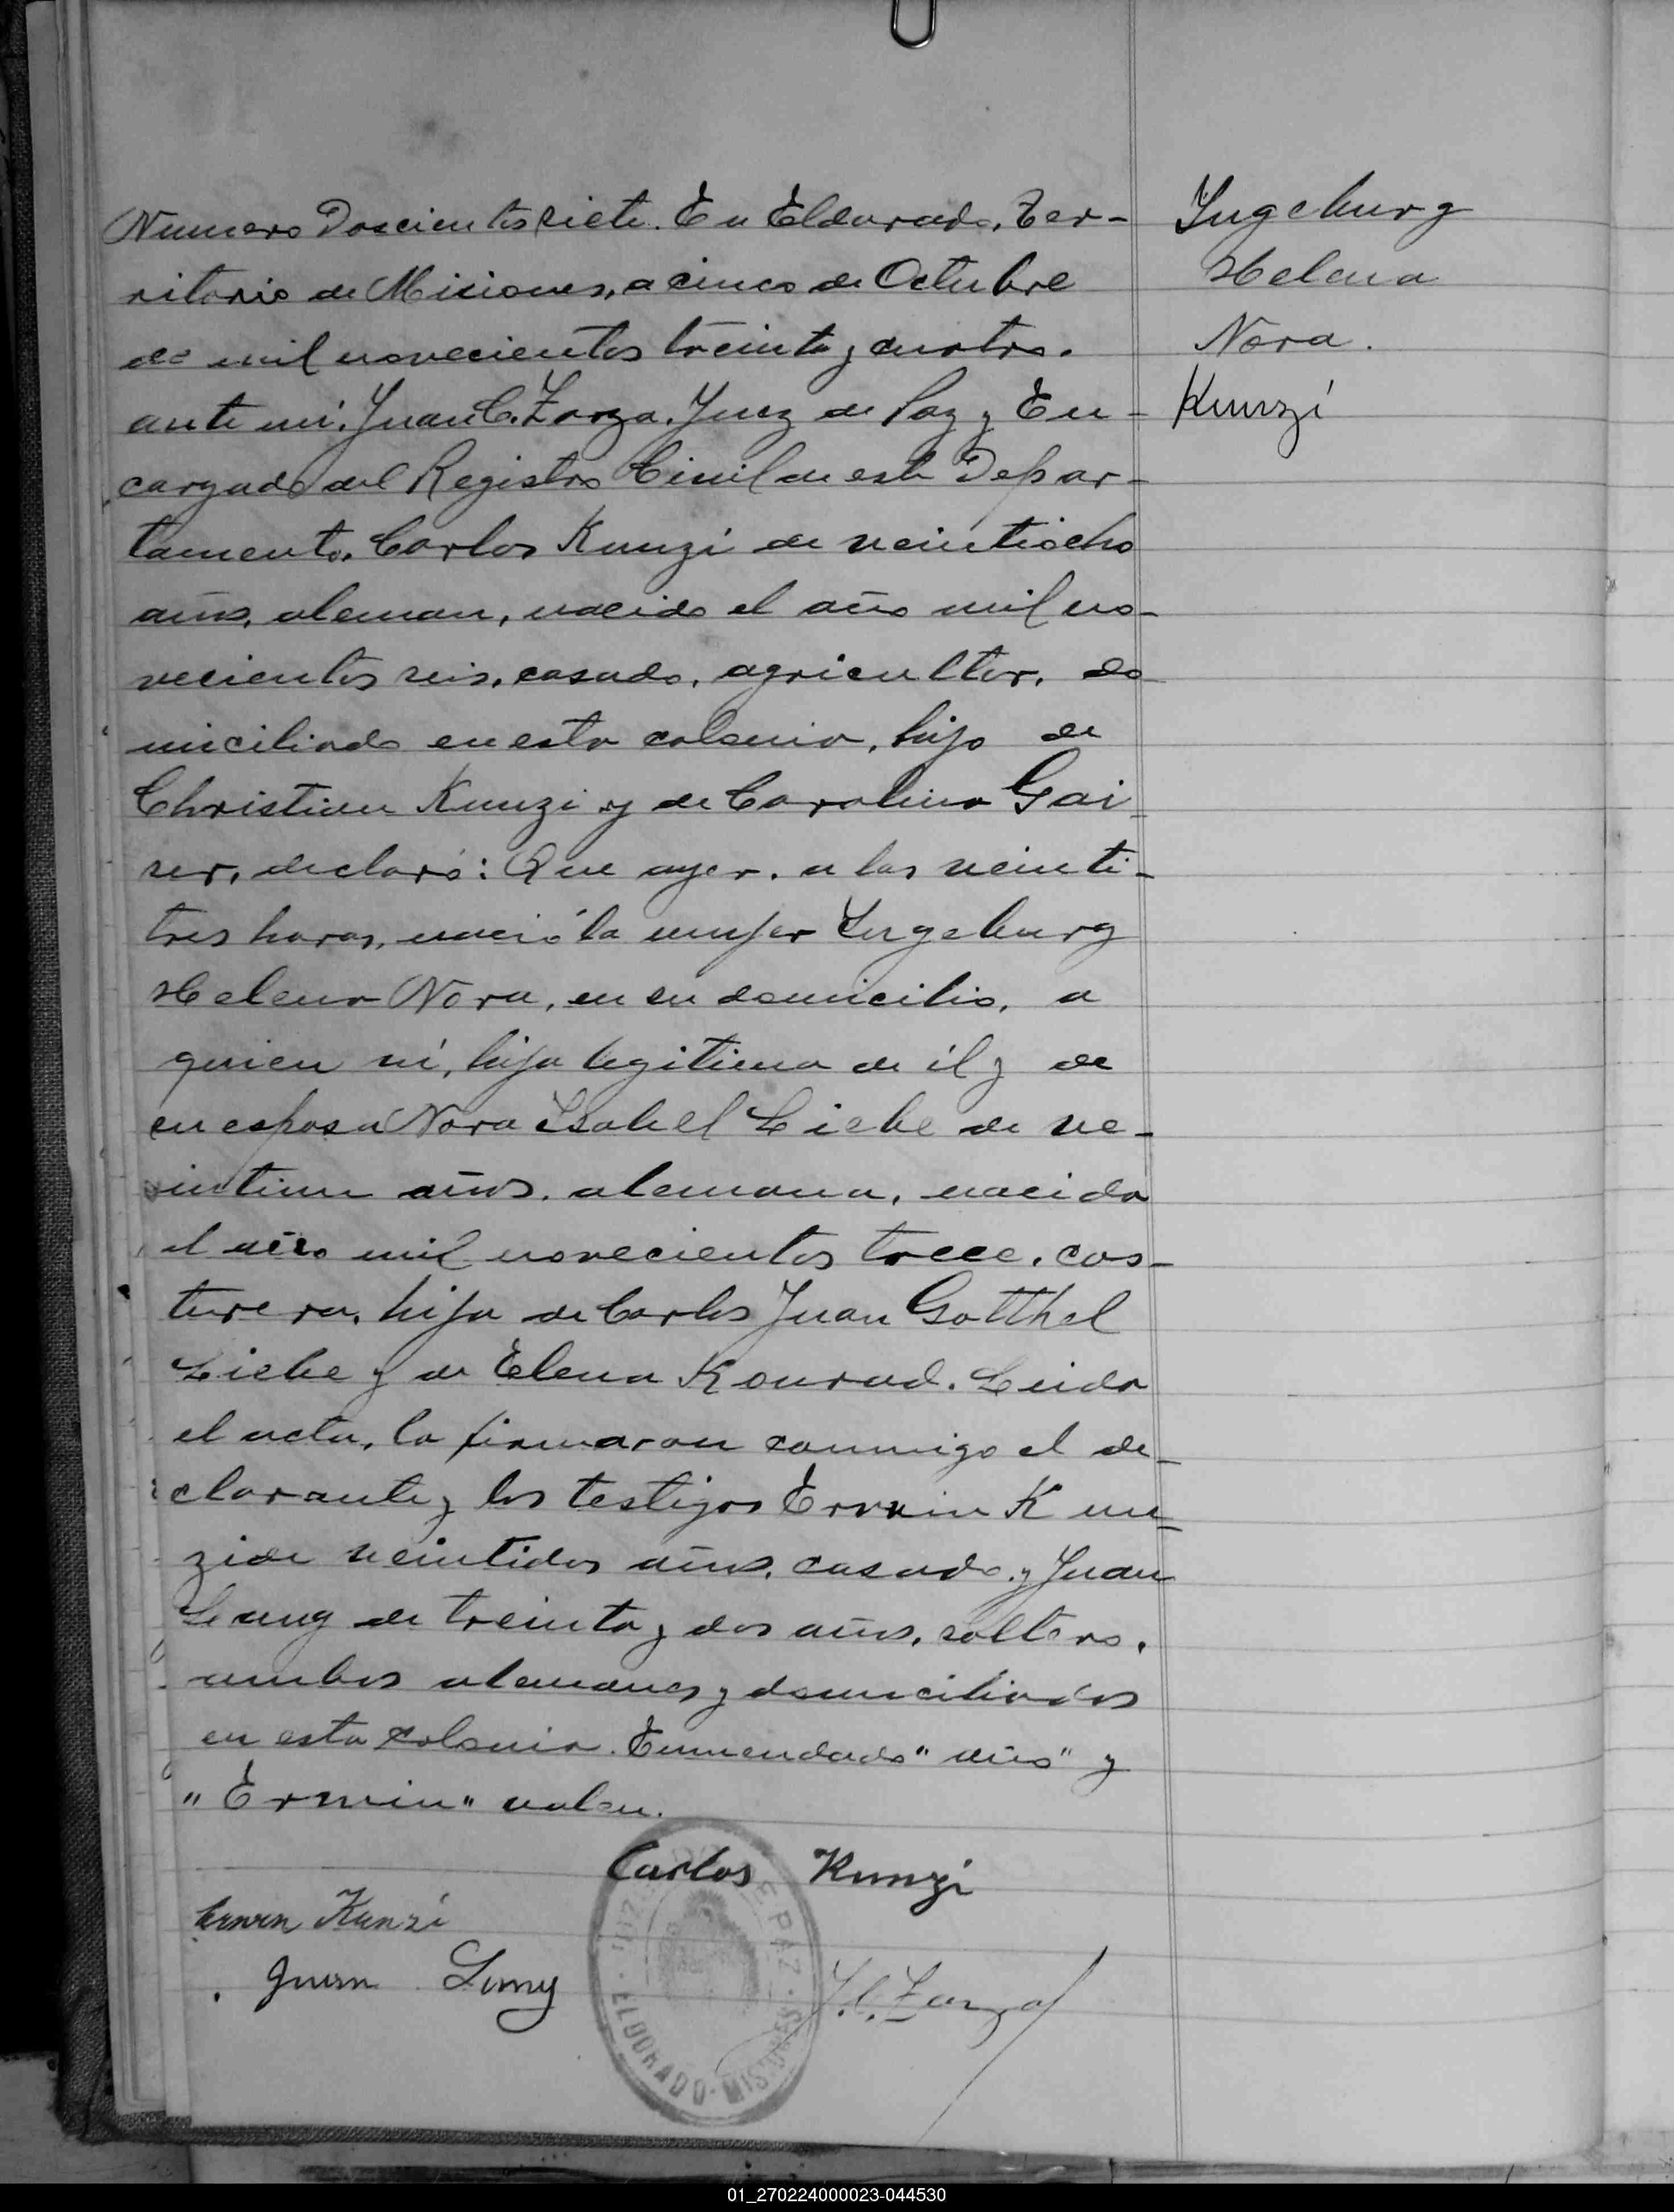 Numero Doscientos siete. En Eldorado, Ter-
ritorio de Misiones, a cinco de Octubre
de mil novecientos treinta y cuatro.
ante mi, Juan C. Zarza, Juez de Paz y En-
cargado del Registro Civil de este Depar-
tamento, Carlos Kunzi de veintiocho
años, aleman, nacido el año mil no-
vecientos seis, casado, agricultor, do
miciliado en esta colonia, hijo de
Christian Kunzi y de Carolina Gai-
ser, declaró: Que ayer, a las veinti-
tres horas, nació la mujer Ingeburg
Helena Nora, en su domicilio, a
quien ví, hija legitima de él y de
su esposa Nora Isabel Liebe de ve-
intiun años, alemana, nacida
el año mil novecientos trece, cos-
turera, hija de Carlos Juan Gotthel
Liebe y de Elena Konrad. Leida
el acta, la firmaron conmigo el de-
clarante y los testigos Erwin Kun-
zi de veintidos años, casado, y Juan
de treinta y dos años, soltero,
ambos alemanes y domiciliados
en esta colonia. Enmendado "año" y
"Erwin" valen.
Ingeburg
Helena
Nora.
Kunzi
Carlos Kunzi
Erwin Kunzi
Juan
J. C. Zarza
JUZ E PAZ
ELDORADO - MISIONES
01_270224000023-044530